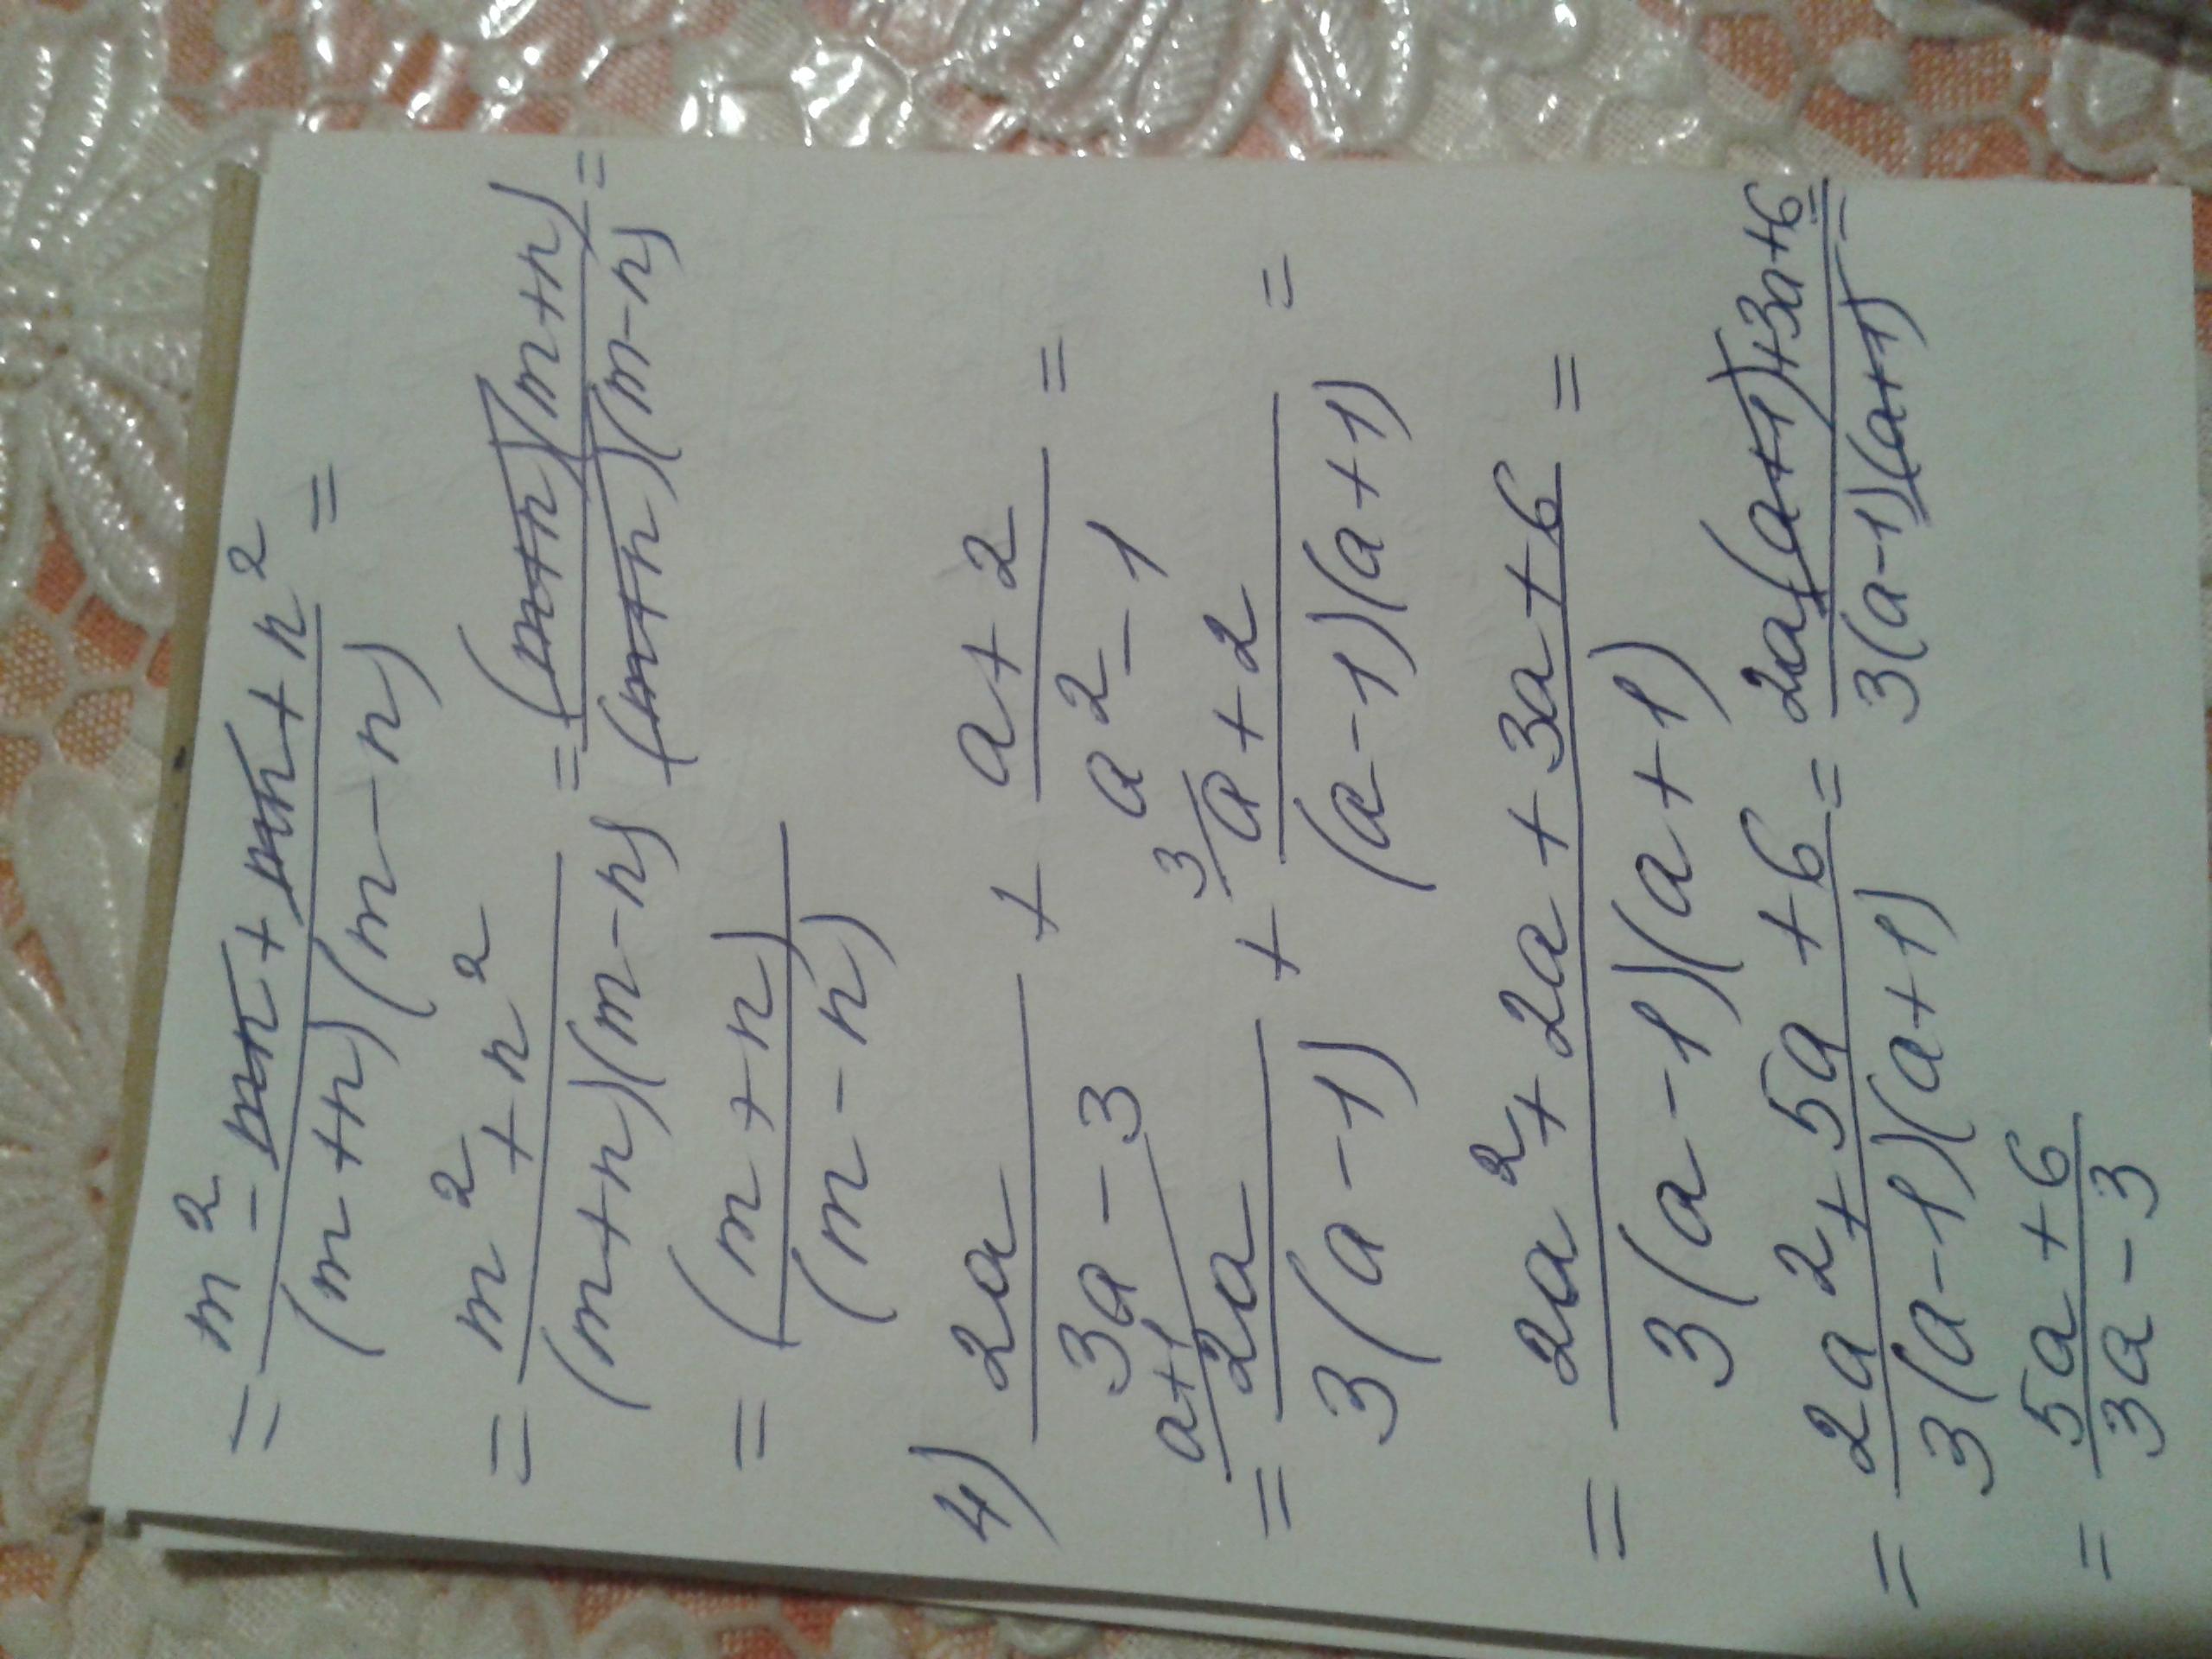 = (m² - mn + mn + n²) / ((m+n)(m-n)) =
= (m² + n²) / ((m+n)(m-n)) = ((m+n)(m+n)) / ((m+n)(m-n)) =
= (m+n) / (m-n)
4) 2a / (3a-3) + (a+2) / (a²-1) =
= a+1/ 2a / (3(a-1)) + 3/ (a+2) / ((a-1)(a+1)) =
= (2a² + 2a + 3a + 6) / (3(a-1)(a+1)) =
= (2a² + 5a + 6) / (3(a-1)(a+1)) = (2a(a+1)+3a+6) / (3(a-1)(a+1)) =
= (5a+6) / (3a-3)